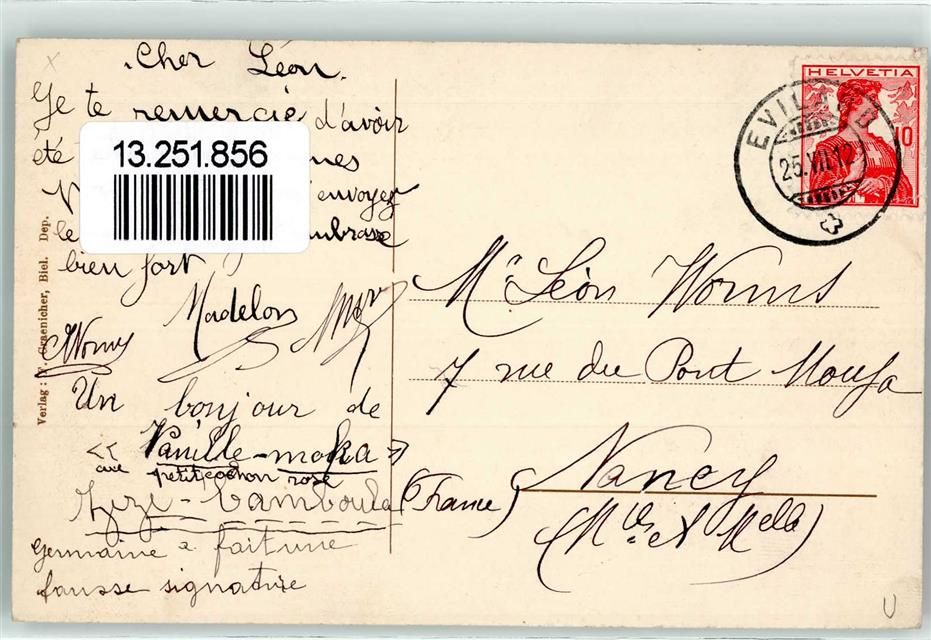 Cher Léon.
Je te remercie d'avoir
été
envoyer
le
bien fort
Madelon
Worms
Un bonjour de
« Vanille-moka »
petit cochon rose
Zizi-Bamboula
Germaine a fait une
fausse signature
13.251.856
Verlag: W. Graenicher, Biel. Dep.
HELVETIA
10
EVILARD
25.VII.12
Mr Léon Worms
7 rue du Pont Mouja
Nancy
(France)
(Mthe et Melle)
U